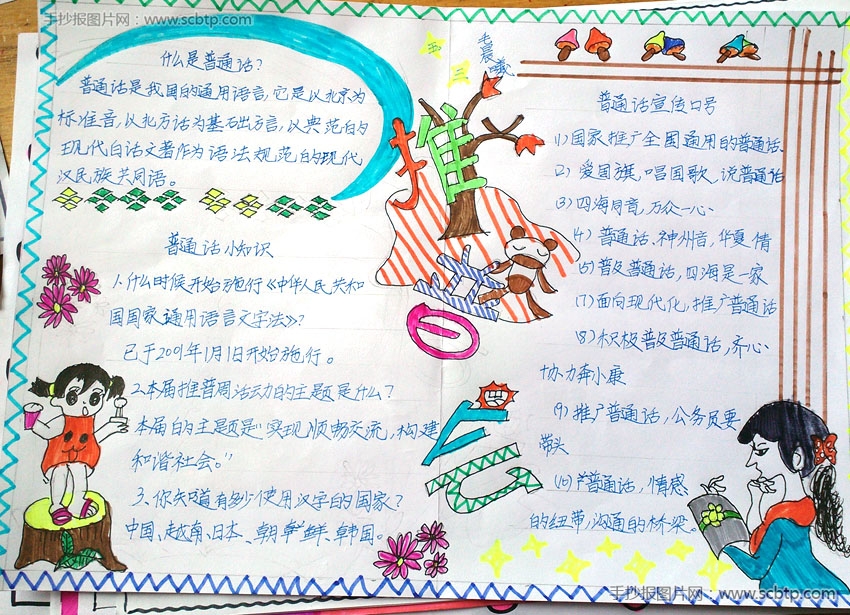 手抄报图片网：www.scbtp.com
什么是普通话？
普通话是我国的通用语言，它是以北京为
标准音，以北方话为基石出方言，以典范白的
现代白话文著作为语法规范的现代
汉民族共同语。
普通话小知识
1.什么时候开始施行《中华人民共和
国国家通用语言文字法》？
已于2001年1月1日开始施行。
2.本届推普周活动的主题是什么？
本届的主题是“实现顺畅交流，构建
和谐社会。”
3、你知道有多少使用汉字的国家？
中国、越南、日本、朝鲜、韩国。
五
三
毛晨曦
推
普
普通话宣传口号
(1)国家推广全国通用的普通话
2）爱国旗，唱国歌，说普通话
(3)四海同音，万众一心
(4）普通话，神州音，华夏情
(5)普及普通话，四海是一家
(7)面向现代化，推广普通话
(8）积极普及普通话，齐心
协力奔小康
(9）推广普通话，公务员要
带头
(10)普通话，情感
的纽带，沟通的桥梁。
手抄报图片网：www.scbtp.com